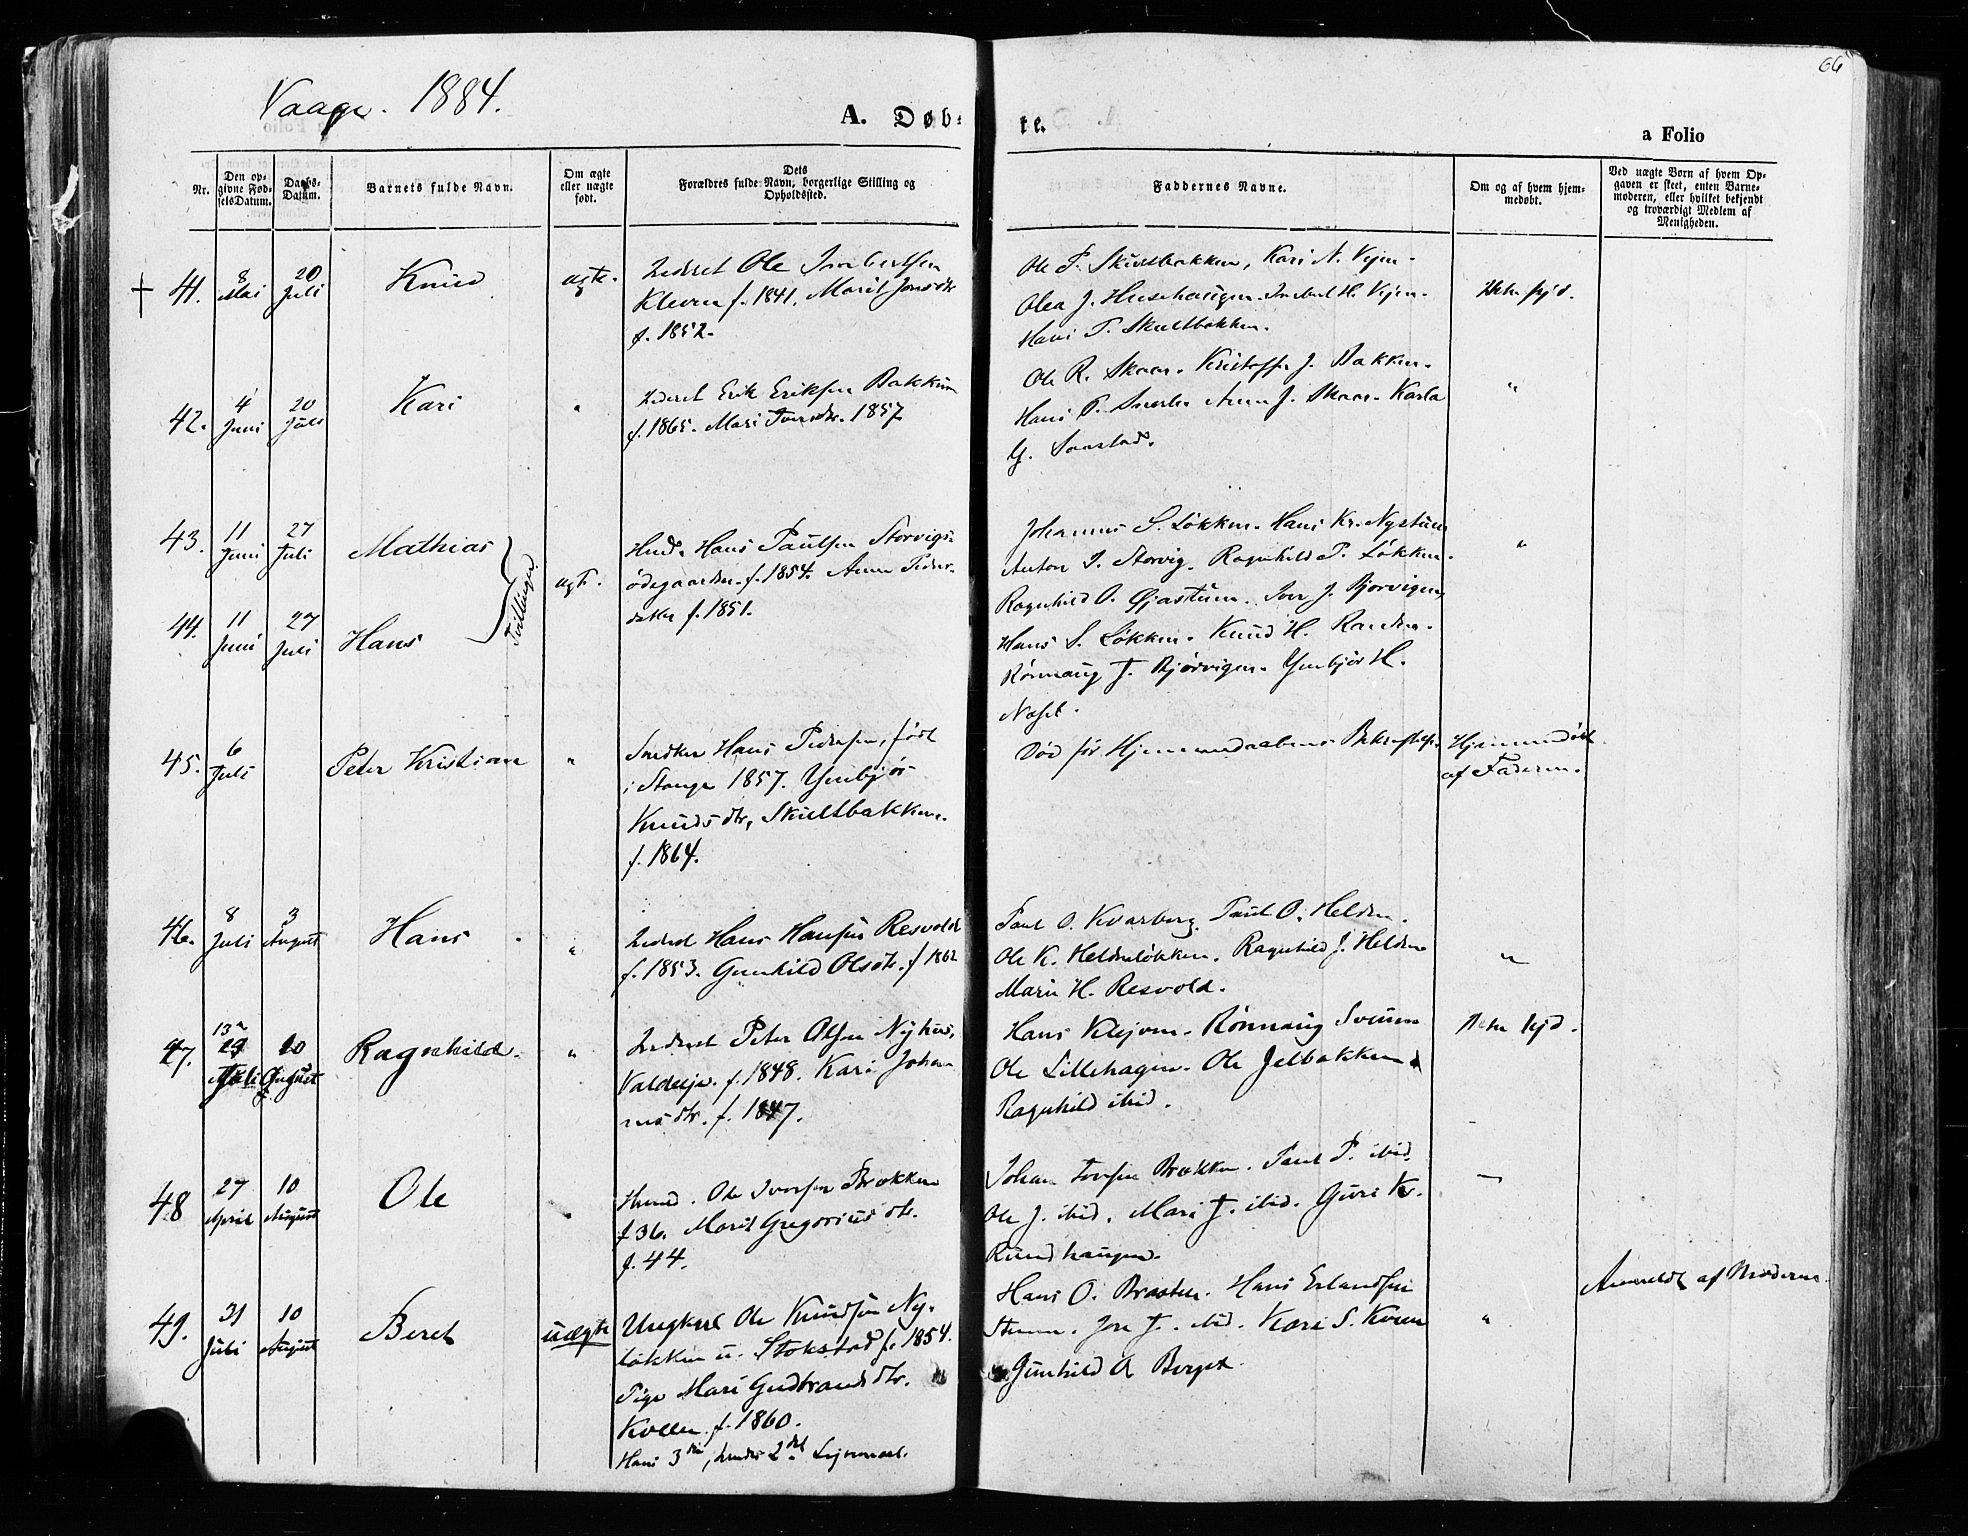 66
Vaage. 1884.
A. Døb-
te.
a Folio
Nr.
Den op-
givne Fød-
selsDatum.
Daabs-
Datum.
Barnets fulde Navn.
Om ægte
eller uægte
født.
Dets
Forældres fulde Navn, borgerlige Stilling og
Opholdssted.
Faddernes Navne.
Om og af hvem hjem-
medøbt.
Ved uægte Børn af hvem Op-
gaven er skeet, enten Barne-
moderen, eller hvilket bekjendt
og troværdigt Medlem af
Menigheden.
41.
8
Mai
20
Juli
Knud
ægte.
Inderst Ole
Kleven f. 1841. Marit Jonsdtr
f. 1852.
Ole P. Skultbakken, Kari N. Vejen.
Olea J. Husehaugen. H. Vejen.
Hans P. Skultbakken.
42.
4
Juni
20
Juli
Kari
"
Inderst Erik Eriksen Bakken
f. 1865. Mari Iversdtr. 1857
Ole R. Skaar. Kristoffer J. Bakken.
Hans P. Anne J. Skaar. Karla
G.
"
43.
11
Juni
27
Juli
Mathias
44.
11
Juni
27
Juli
Hans
Tvillinger
ægte.
Husm. Hans Paulsen Storvigs-
ødegaarden. f. 1854. Anne Peders-
datter f. 1851.
Johannes S. Løkken. Hans Kr. Nystuen
Anton I. Storvig. Ragnhild P. Løkken.
Ragnhild O. Øjastuen. Iver J. Bjørvigen,
Hans S. Løkken. Knud H. Randen.
Rønnaug J. Bjørvigen. Ymbjør H.
"
45.
6
Juli
Peter Kristian
"
Snedker Hans Pedersen, født
i Stange 1857. Ymbjør
Knudsdtr, Skultbakken.
f. 1864.
Død før Hjemmedaabens Bekræftelse.
Hjemmedøbt
af Faderen.
46.
8
Juli
3
August
Hans
"
Inderst Hans Hansen Resvold
f. 1853. Gunhild Olsdtr. f 1862
Paul O. Kvarberg. Paul O. Helden.
Ole K. Heldenløkken. Ragnhild J. Helden
Marie H. Resvold.
"
47.
13
Juli
10
August
Ragnhild.
"
Inderst Peter Olsen Nyhus,
Valdeeje. f. 1848. Kari Johan
nesdtr. f. 1847.
Hans Klejven. Rønnaug Sveen
Ole Lillehagen. Ole Jelbakken
Ragnhild ibid.
48
27
April
10
August
Ole
"
Husm. Ole Iversen Brækken
f 36. Marit Gregoriusdtr.
f. 44.
Johan Iversen Brækken. Paul P. ibid.
Ole J. ibid. Mari J. ibid. Guri K.
Rundhaugen.
49.
31
Juli
10
August
Beret
uægte
Ungkarl Ole Knudsen Ny-
løkken u. Stokstad f. 1854.
Pige Mari Gudbrandsdtr.
Kollen f. 1860.
Hans 3die, hendes 2det Lejermaal.
Hans O. Braaten. Hans Erlandsen
J. ibid. Kari S. Kveen
Gunhild A Berget.
"
Anmeldt af Moderen.